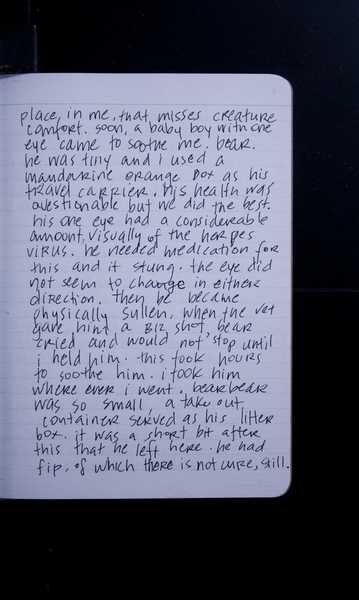 place, in me, that misses creature
comfort. soon, a baby boy with one
eye came to soothe me. bear.
he was tiny and i used a
mandarine orange box as his
travel carrier. his health was
questionable but we did the best.
his one eye had a considerable
amount, visually of the herpes
virus. he needed medication for
this and it stung. the eye did
not seem to change in either
direction. then he became
physically sullen. when the vet
gave him a B12 shot, bear
cried and would not stop until
i held him. this took hours
to soothe him. i took him
where ever i went. bearbear
was so small, a take out
container served as his litter
box. it was a short bit after
this that he left here. he had
fip. of which there is not cure, still.